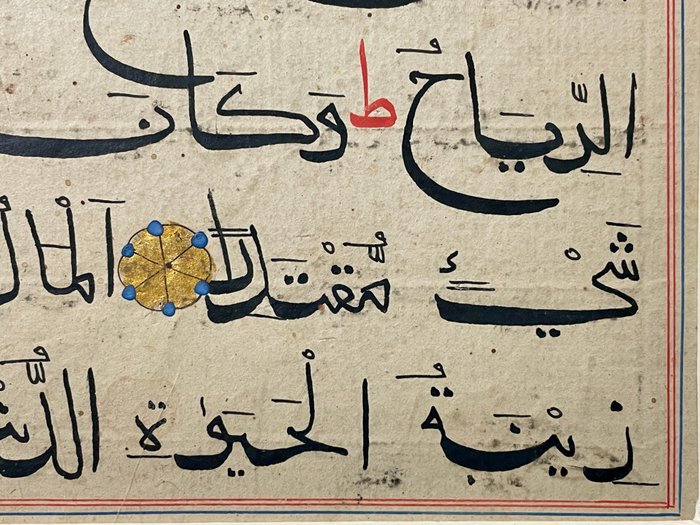 الرِّيَاحُ ط وَكَانَ
شَيْءٍ مُّقْتَدِرًا اَلْمَالُ
زِيْنَةُ الْحَيٰوةِ